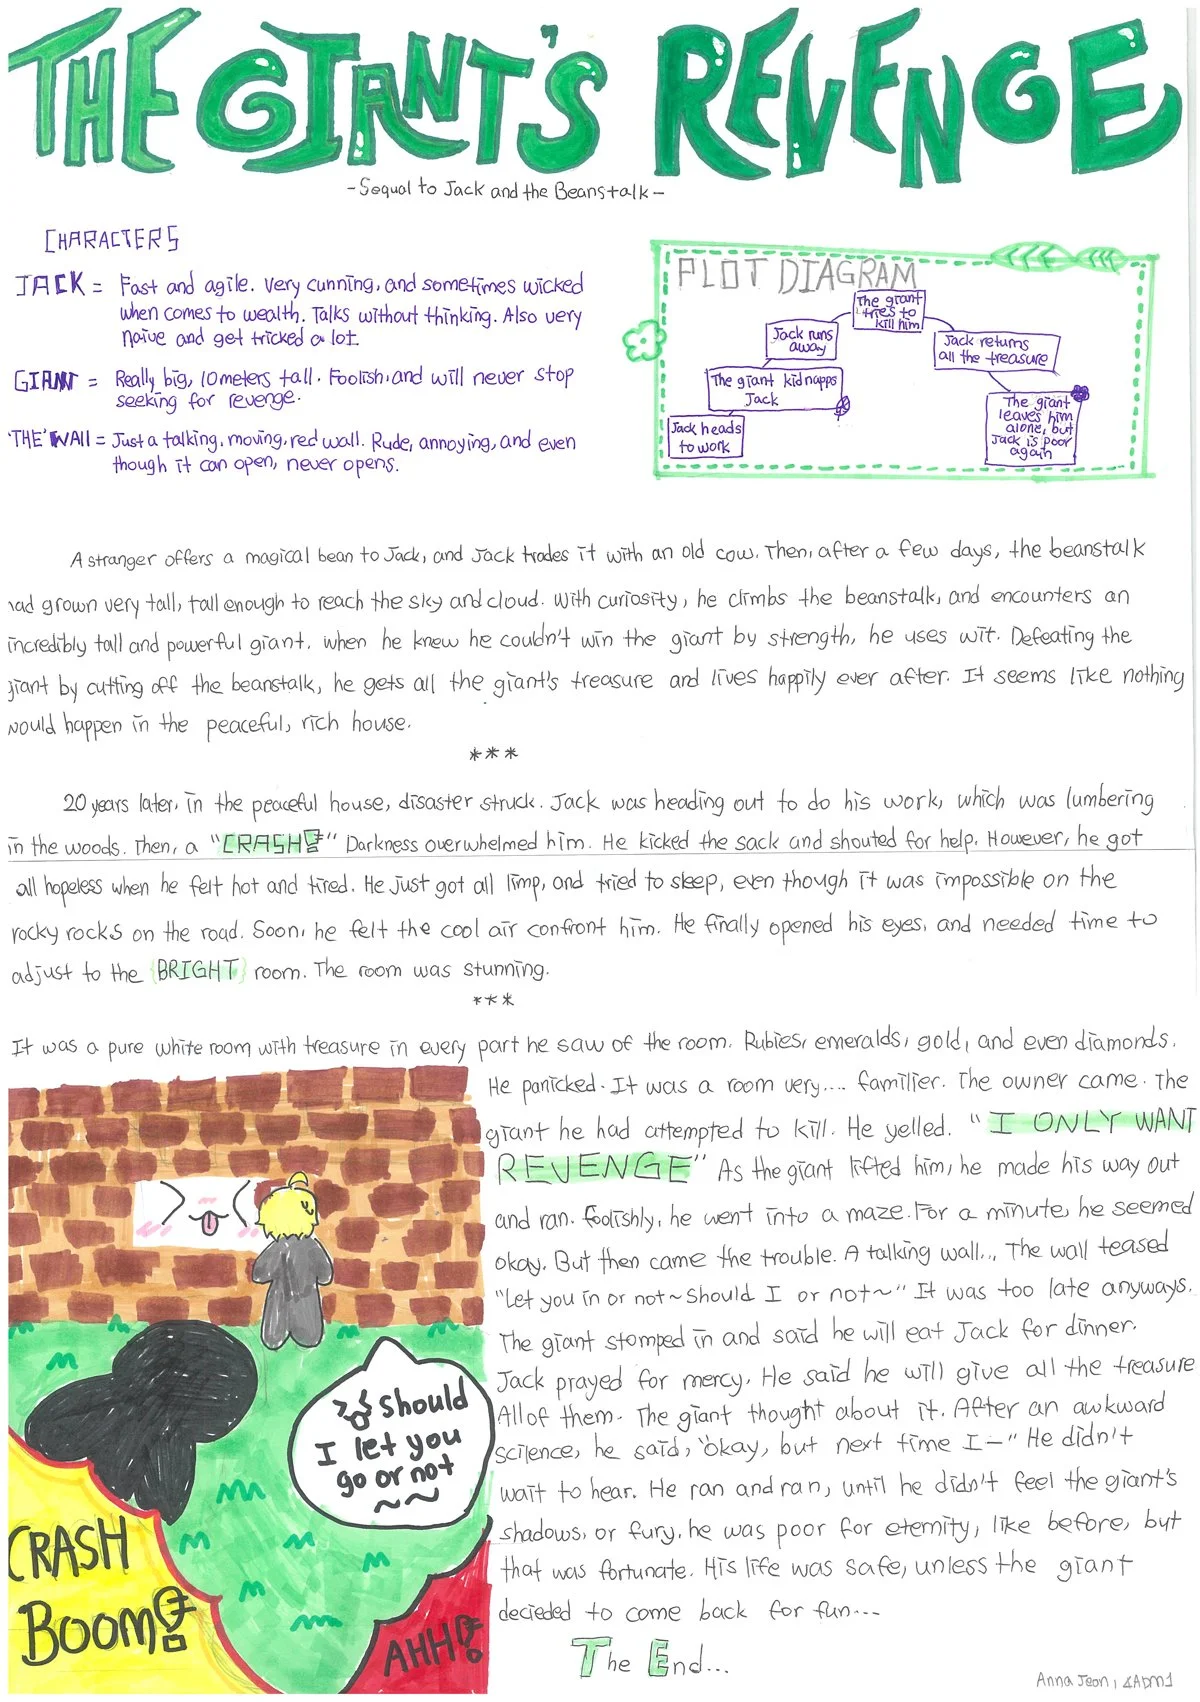 THE GIANT'S REVENGE
-Sequal to Jack and the Beanstalk-
CHARACTERS
JACK = Fast and agile. Very cunning, and sometimes wicked
when comes to wealth. Talks without thinking. Also very
naive and get tricked a lot.
GIANT = Really big, 10 meters tall. Foolish, and will never stop
seeking for revenge.
'THE' WAll = Just a talking, moving, red wall. Rude, annoying, and even
though it can open, never opens.
PLOT DIAGRAM
The giant
tries to
kill him
Jack runs
away
Jack returns
all the treasure
The giant kidnapps
Jack
The giant
leaves him
alone, but
Jack is poor
again
Jack heads
to work
A stranger offers a magical bean to Jack, and Jack trades it with an old cow. Then, after a few days, the beanstalk
had grown very tall, tall enough to reach the sky and cloud. With curiosity, he climbs the beanstalk, and encounters an
incredibly tall and powerful giant. When he knew he couldn't win the giant by strength, he uses wit. Defeating the
giant by cutting off the beanstalk, he gets all the giant's treasure and lives happily ever after. It seems like nothing
would happen in the peaceful, rich house.
***
20 years later, in the peaceful house, disaster struck. Jack was heading out to do his work, which was lumbering
in the woods. Then, a "CRASH!" Darkness overwhelmed him. He kicked the sack and shouted for help. However, he got
all hopeless when he felt hot and tired. He just got all limp, and tried to sleep, even though it was impossible on the
rocky rocks on the road. Soon, he felt the cool air confront him. He finally opened his eyes, and needed time to
adjust to the BRIGHT room. The room was stunning.
***
It was a pure white room with treasure in every part he saw of the room. Rubies, emeralds, gold, and even diamonds.
He panicked. It was a room very.... familier. The owner came. The
giant he had attempted to kill. He yelled. "I ONLY WANT
REVENGE" As the giant lifted him, he made his way out
and ran. Foolishly, he went into a maze. For a minute, he seemed
okay. But then came the trouble. A talking wall... The wall teased
"Let you in or not~ Should I or not~" It was too late anyways.
The giant stomped in and said he will eat Jack for dinner.
Jack prayed for mercy. He said he will give all the treasure
All of them. The giant thought about it. After an awkward
scilence, he said, "okay, but next time I-" He didn't
wait to hear. He ran and ran, until he didn't feel the giant's
shadows, or fury. he was poor for eternity, like before, but
that was fortunate. His life was safe, unless the giant
decieded to come back for fun...
The End...
Should
I let you
go or not
~~
CRASH
BOOM!
AHH!
Anna Jeon, 4ADM1